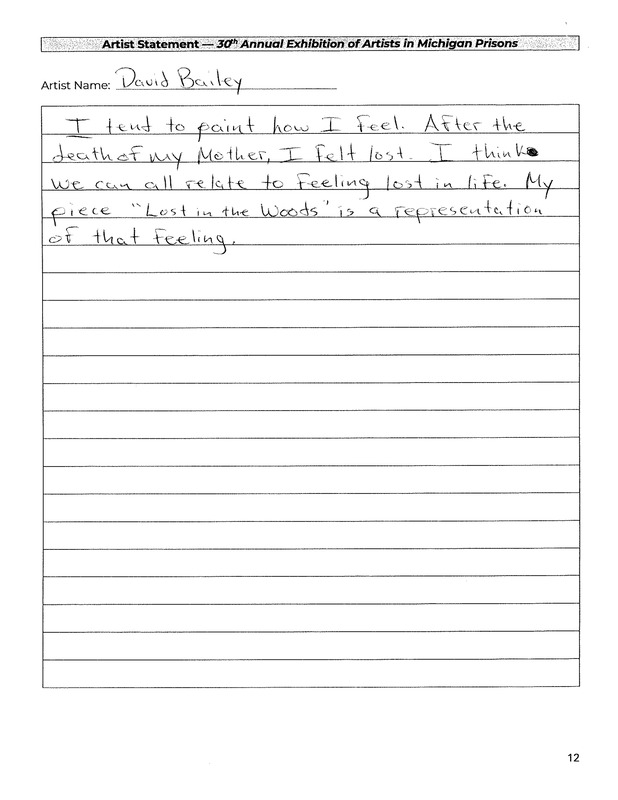 Artist Statement — 30th Annual Exhibition of Artists in Michigan Prisons
Artist Name: David Bailey
I tend to paint how I feel. After the
death of my Mother, I felt lost. I think
we can all relate to feeling lost in life. My
piece "Lost in the Woods" is a representation
of that feeling.
12